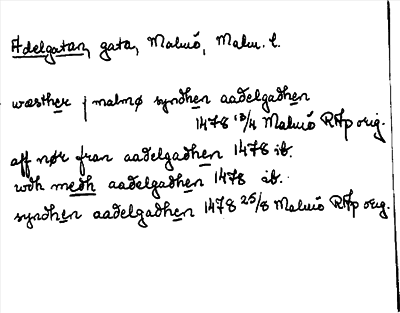 Adelgatan, gata, Malmö, Malm. l.
wæsther j malmø syndhen aadelgadhen
1478 13/4 Malmö RAp orig.
aff nør fran aadelgadhen 1478 ib.
wdh medh aadelgadhen 1478 ib.
syndhen aadelgadhen 1478 25/8 Malmö RAp orig.